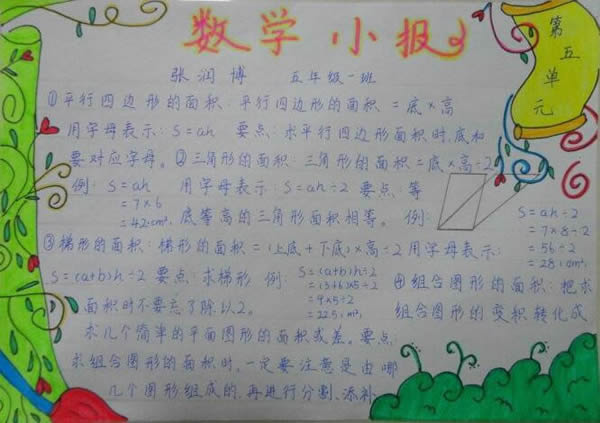 数学小报
第五单元
张润博 五年级一班
①平行四边形的面积:平行四边形的面积=底×高
用字母表示:S=ah 要点:求平行四边形面积时,底和
要对应字母。②三角形的面积:三角形的面积=底×高÷2
例:S=ah 用字母表示:S=ah÷2 要点:等
=7×6
=42(cm²) 底等高的三角形面积相等。 例:
S=ah÷2
=7×8÷2
=56÷2
=28(cm²)
③梯形的面积:梯形的面积=(上底+下底)×高÷2 用字母表示:
S=(a+b)h÷2 要点:求梯形 例:S=(a+b)h÷2
=(3+6)×5÷2
面积时不要忘了除以2。
=9×5÷2
=22.5(m²)
④组合图形的面积:把求
组合图形的变积转化成
求几个简单的平面图形的面积或差。要点:
求组合图形的面积时,一定要注意是由哪
几个图形组成的,再进行分割、添补